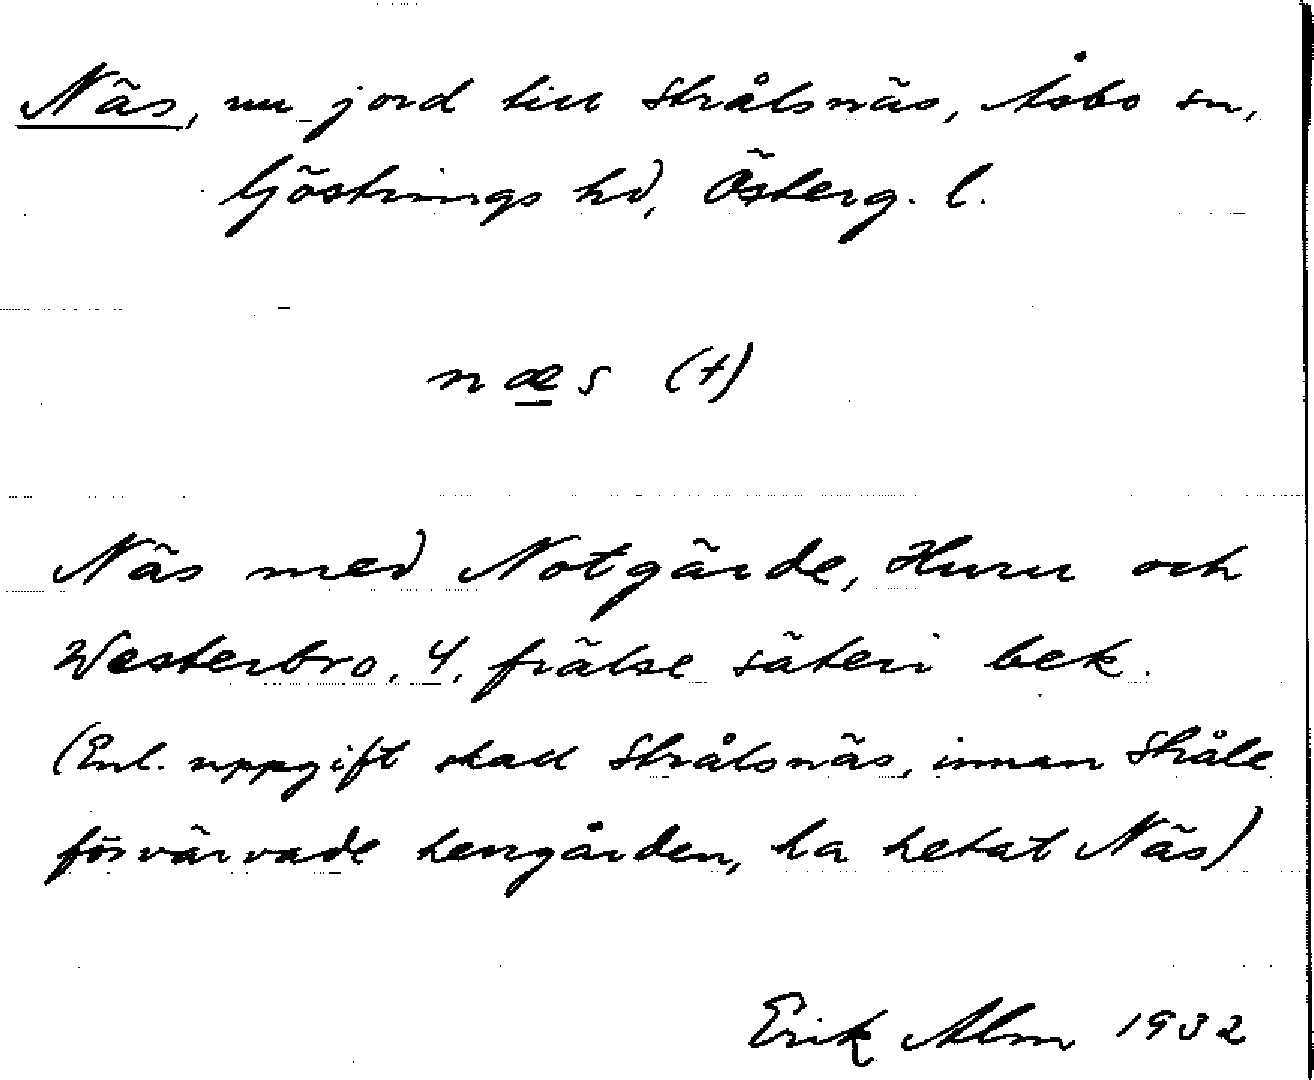 Näs, nu jord till Strålsnäs, Åsbo sn,
Göstrings hd, Österg. l.
næs (+)
Näs med Notgärde, Huru och
Westerbro, 4, frälse säteri bek.
(Enl. uppgift skall Strålsnäs, innan Stråle
förvärvade herrgården, ha hetat Näs)
Erik Alm 1932